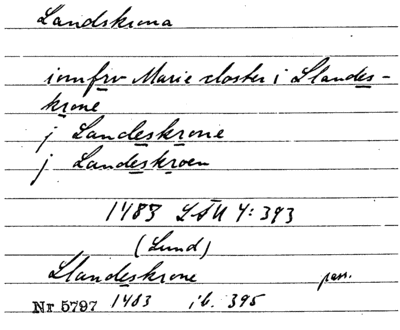 Landskrona
iomfrv Marie closter i Llandes-
krone
j Landeskrone
j Landeskroen
1483 LÄU 4:393
(Lund)
Llandeskrone pass.
Nr 5797 1483 ib. 395